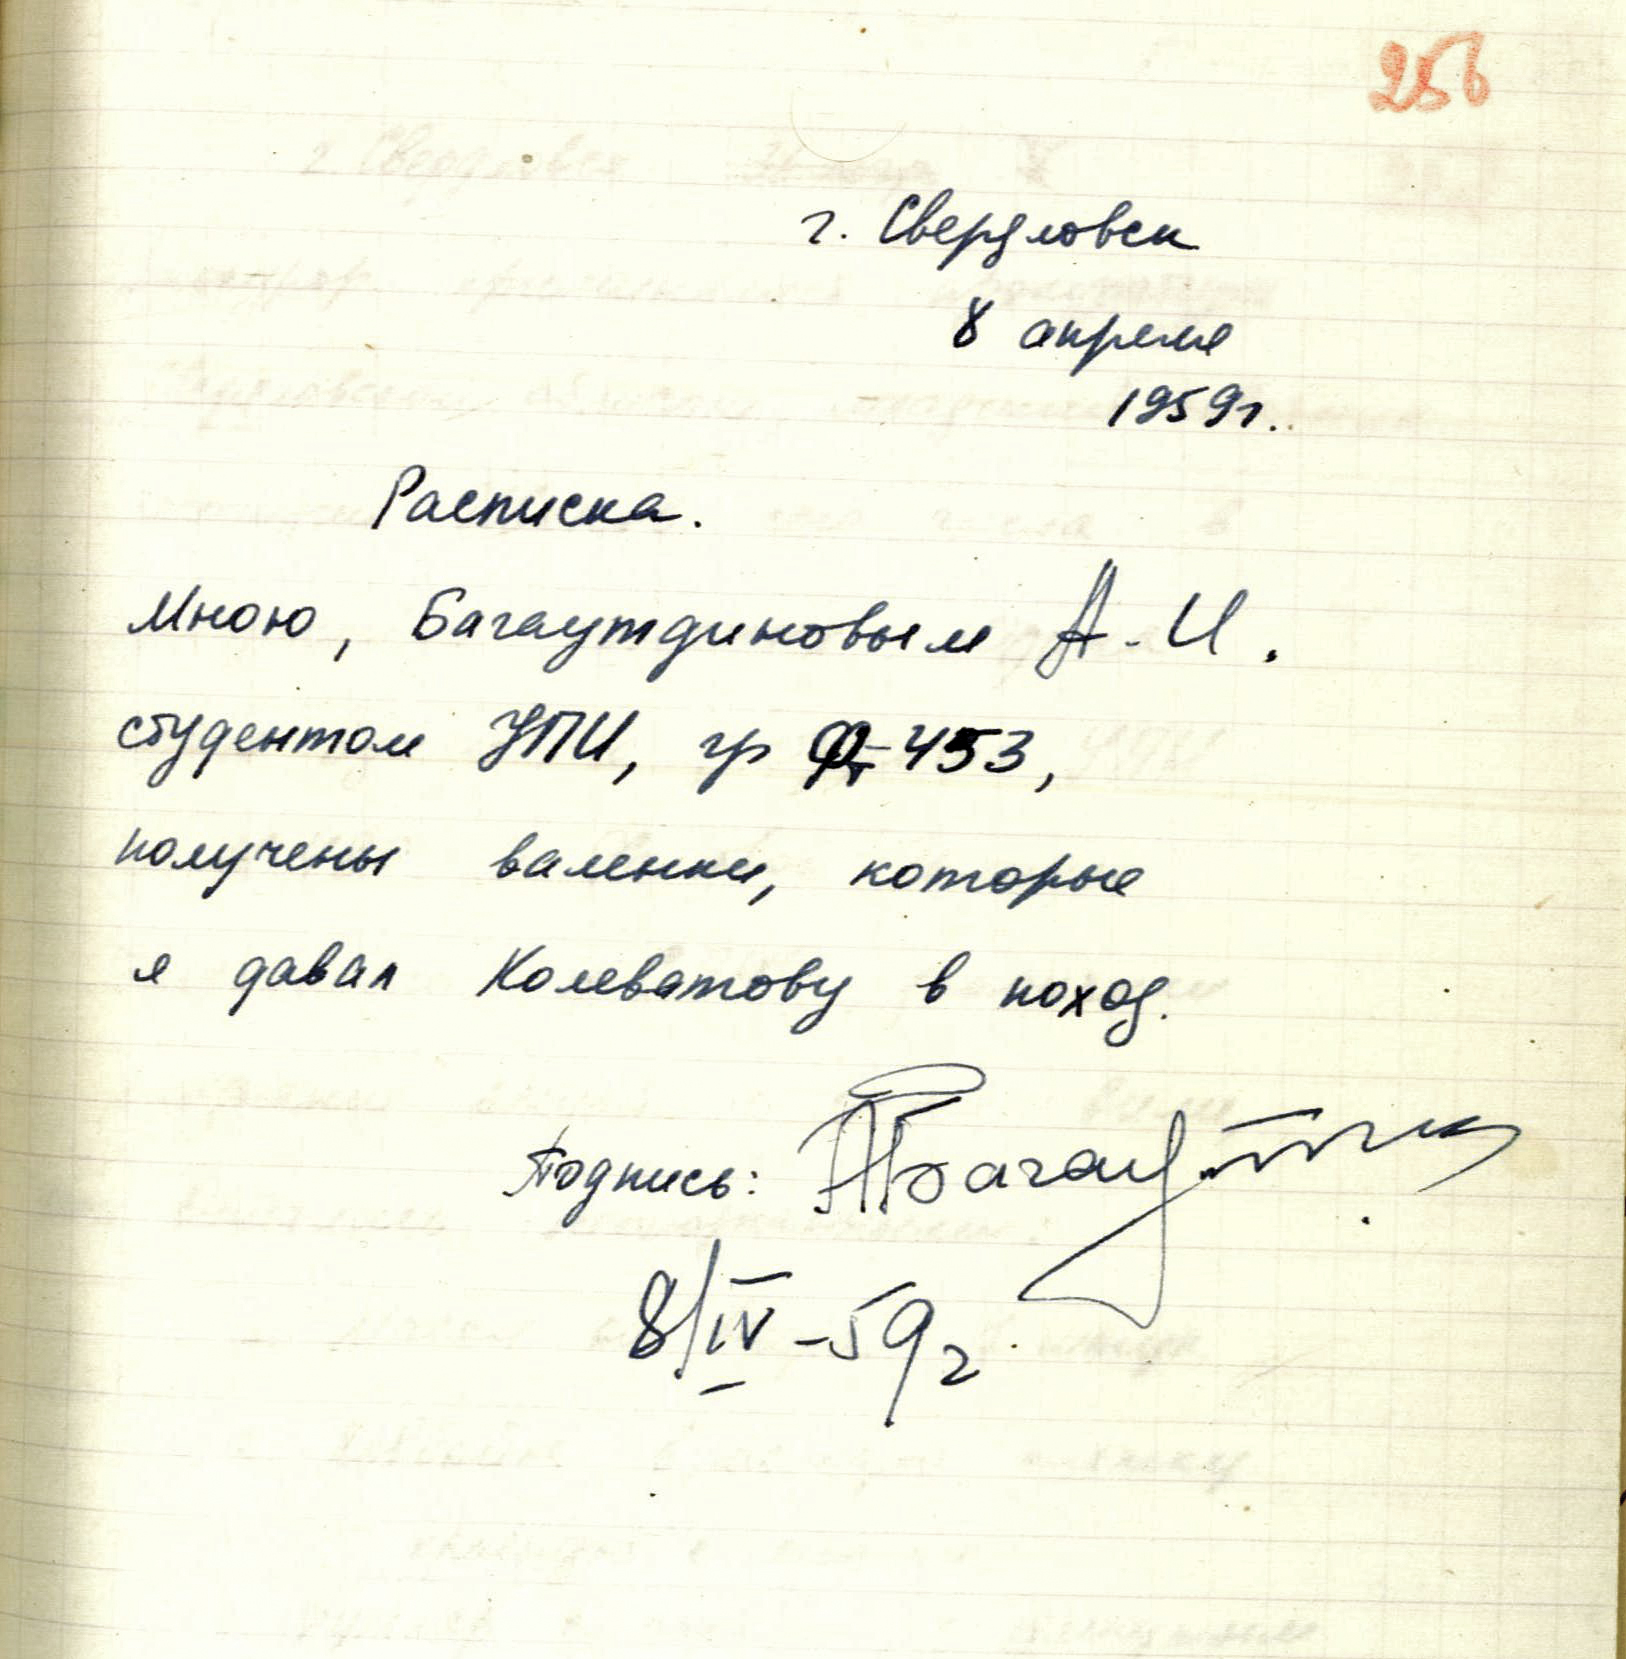 256
г. Свердловск
8 апреля
1959г.
Расписка.
Мною, Багаутдиновым А. И.
студентом УПИ, гр Фт-453,
получены валенки, которые
я давал Колеватову в поход.
Подпись: Багаут
8/IV-59г